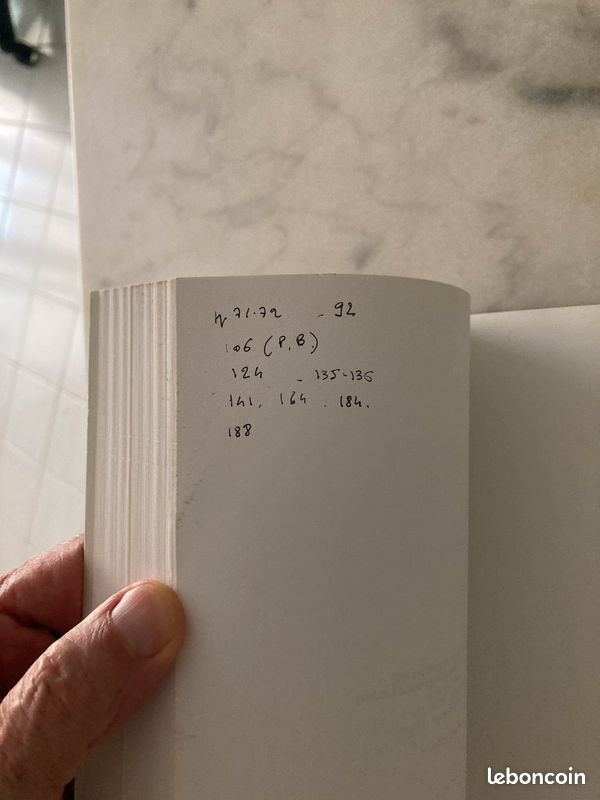 p 71.72 - 92
106 (P.B.)
124 - 135-136
141. 164 . 184.
188
leboncoin